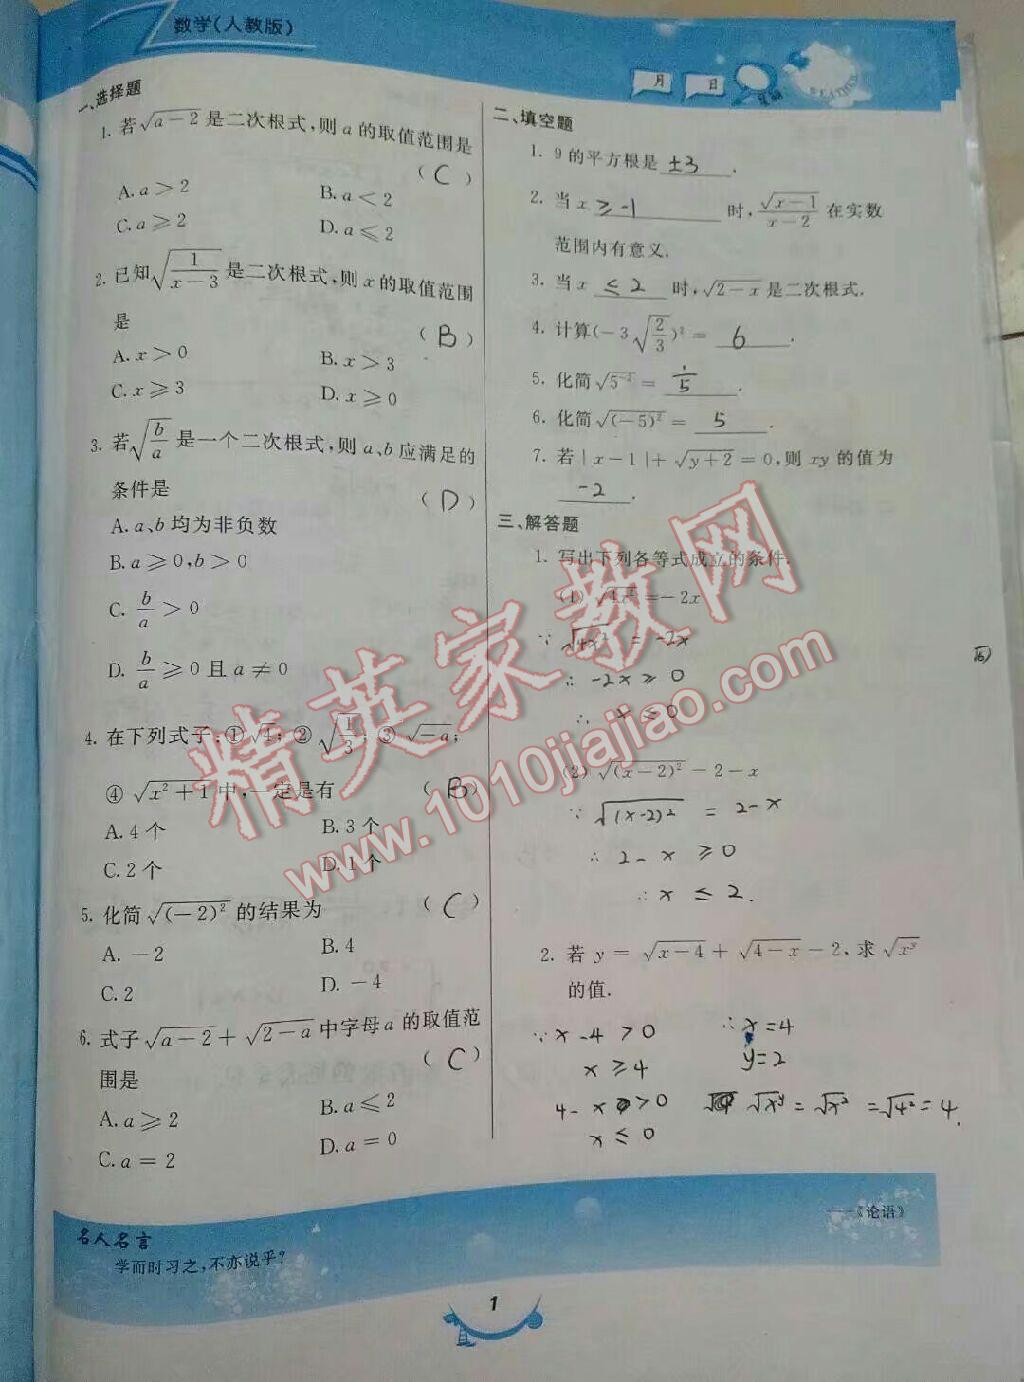 数学(人教版)
月 日
一、选择题
1. 若√(a-2)是二次根式,则a的取值范围是
( C )
A. a>2 B. a<2
C. a⩾2 D. a⩽2
2. 已知√(1/(x-3))是二次根式,则x的取值范围
是 ( B )
A. x>0 B. x>3
C. x⩾3 D. x⩾0
3. 若√(b/a)是一个二次根式,则a、b应满足的
条件是 ( D )
A. a、b均为非负数
B. a⩾0,b>0
C. b/a>0
D. b/a⩾0且a≠0
4. 在下列式子:①√4;②√(1/3);③√(-a);
④√(x²+1)中,一定是有 ( B )
A. 4个 B. 3个
C. 2个 D. 1个
5. 化简√((-2)²)的结果为 ( C )
A. -2 B. 4
C. 2 D. -4
6. 式子√(a-2)+√(2-a)中字母a的取值范
围是 ( C )
A. a⩾2 B. a⩽2
C. a=2 D. a=0
二、填空题
1. 9的平方根是 ±3 .
2. 当x ≥-1 时,√(x-1)/(x-2)在实数
范围内有意义.
3. 当x ≤2 时,√(2-x)是二次根式.
4. 计算(-3√(2/3))²= 6 .
5. 化简√(5⁻²)= 1/5 .
6. 化简√((-5)²)= 5 .
7. 若|x-1|+√(y+2)=0,则xy的值为
-2 .
三、解答题
1. 写出下列各等式成立的条件.
(1)√(4x²)=-2x
∵ √(4x²) = -2x
∴ -2x ≥ 0
∴ x ≤ 0
(2)√((x-2)²)-2-x
∵ √((x-2)²) = 2-x
∴ 2-x ≥0
∴ x ≤ 2.
2. 若y=√(x-4)+√(4-x)-2、求√(x^y)
的值.
∵x-4>0 ∴x=4
x≥4 y=2
4-x>0 √(x^y)=√(x²)=√(4²)=4.
x≤0
——《论语》
名人名言
学而时习之,不亦说乎?
1
精英家教网
www.1010jiajiao.com